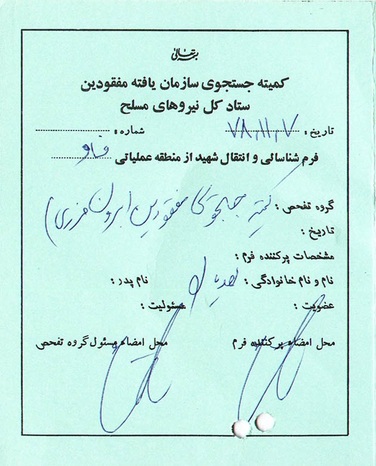 بسمه تعالی
کمیته جستجوی سازمان یافته مفقودین
ستاد کل نیروهای مسلح
تاریخ : ۷۸،۱۱،۷ شماره :
فرم شناسائی و انتقال شهید از منطقه عملیاتی فاو
گروه تفحص : کمیته جستجوی مفقودین (برون مرزی)
تاریخ :
مشخصات پرکننده فرم :
نام و نام خانوادگی : نام پدر :
عضویت : مسئولیت :
محل امضاء پرکننده فرم محل امضاء مسئول گروه تفحص